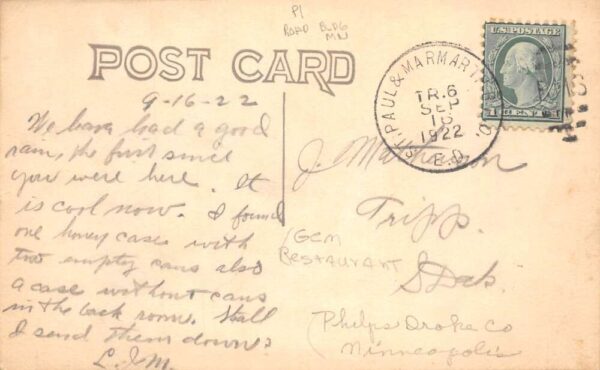 P1
ROAD BLDG
MN
POST CARD
9-16-22
We have had a good
rain, the first since
you were here. It
is cool now. I found
one honey case with
two empty cans also
a case without cans
in the back room. Shall
I send them down?
L.J.M.
U.S. POSTAGE
1 CENT 1
ST. PAUL & MARMARTH R.P.O.
TR. 6
SEP
16
1922
E.D.
J.
Tripp.
S Dak.
GEM
RESTAURANT
Phelps Drake Co
Minneapolis